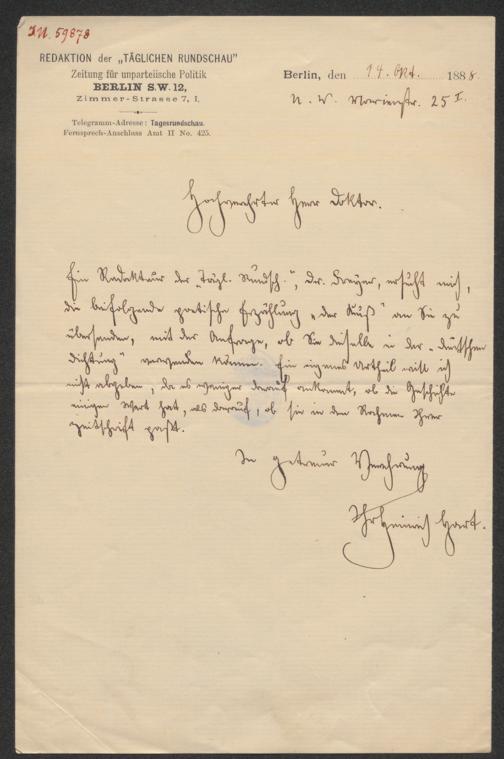 I.N. 59878
REDAKTION der „TÄGLICHEN RUNDSCHAU"
Zeitung für unparteiische Politik
BERLIN S.W. 12,
Zimmer-Strasse 7, I.
Telegramm-Adresse: Tagesrundschau.
Fernsprech-Anschluss Amt II No. 425.
Berlin, den 14. Okt. 1888.
N. W. Marienstr. 25 I.
Hochverehrter Herr Doktor.
Ein Redakteur der „Tägl. Rundsch.", Dr. Dreyer, ersucht mich,
die beifolgende poetische Erzählung „der Kuß" an Sie zu
übersenden, mit der Anfrage, ob Sie dieselbe in der „deutschen
Dichtung" verwenden können. Ein eigenes Urtheil will ich
nicht abgeben, da es weniger darauf ankommt, ob die Geschichte
einigen Wert hat, als darauf, ob sie in den Rahmen Ihrer
Zeitschrift paßt.
In getreuer Verehrung
Ihr Heinrich Hart.